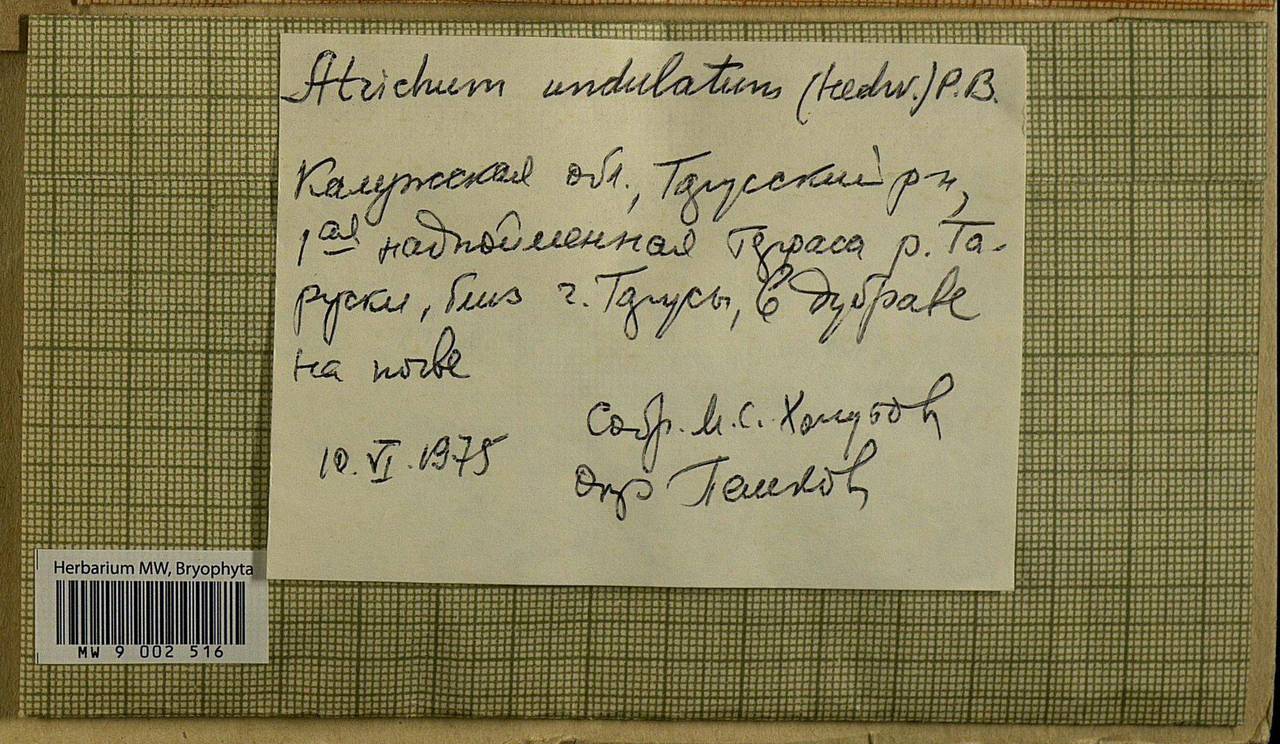 Atrichum undulatum (Hedw.) P.B.
Калужская обл., Тарусский р-н,
1ая надпойменная терраса р. Та-
руски, близ г. Тарусы, в дубраве
на почве
Собр. М.С.
10.VI.1975
опр
Herbarium MW, Bryophyta
MW 9 002 516